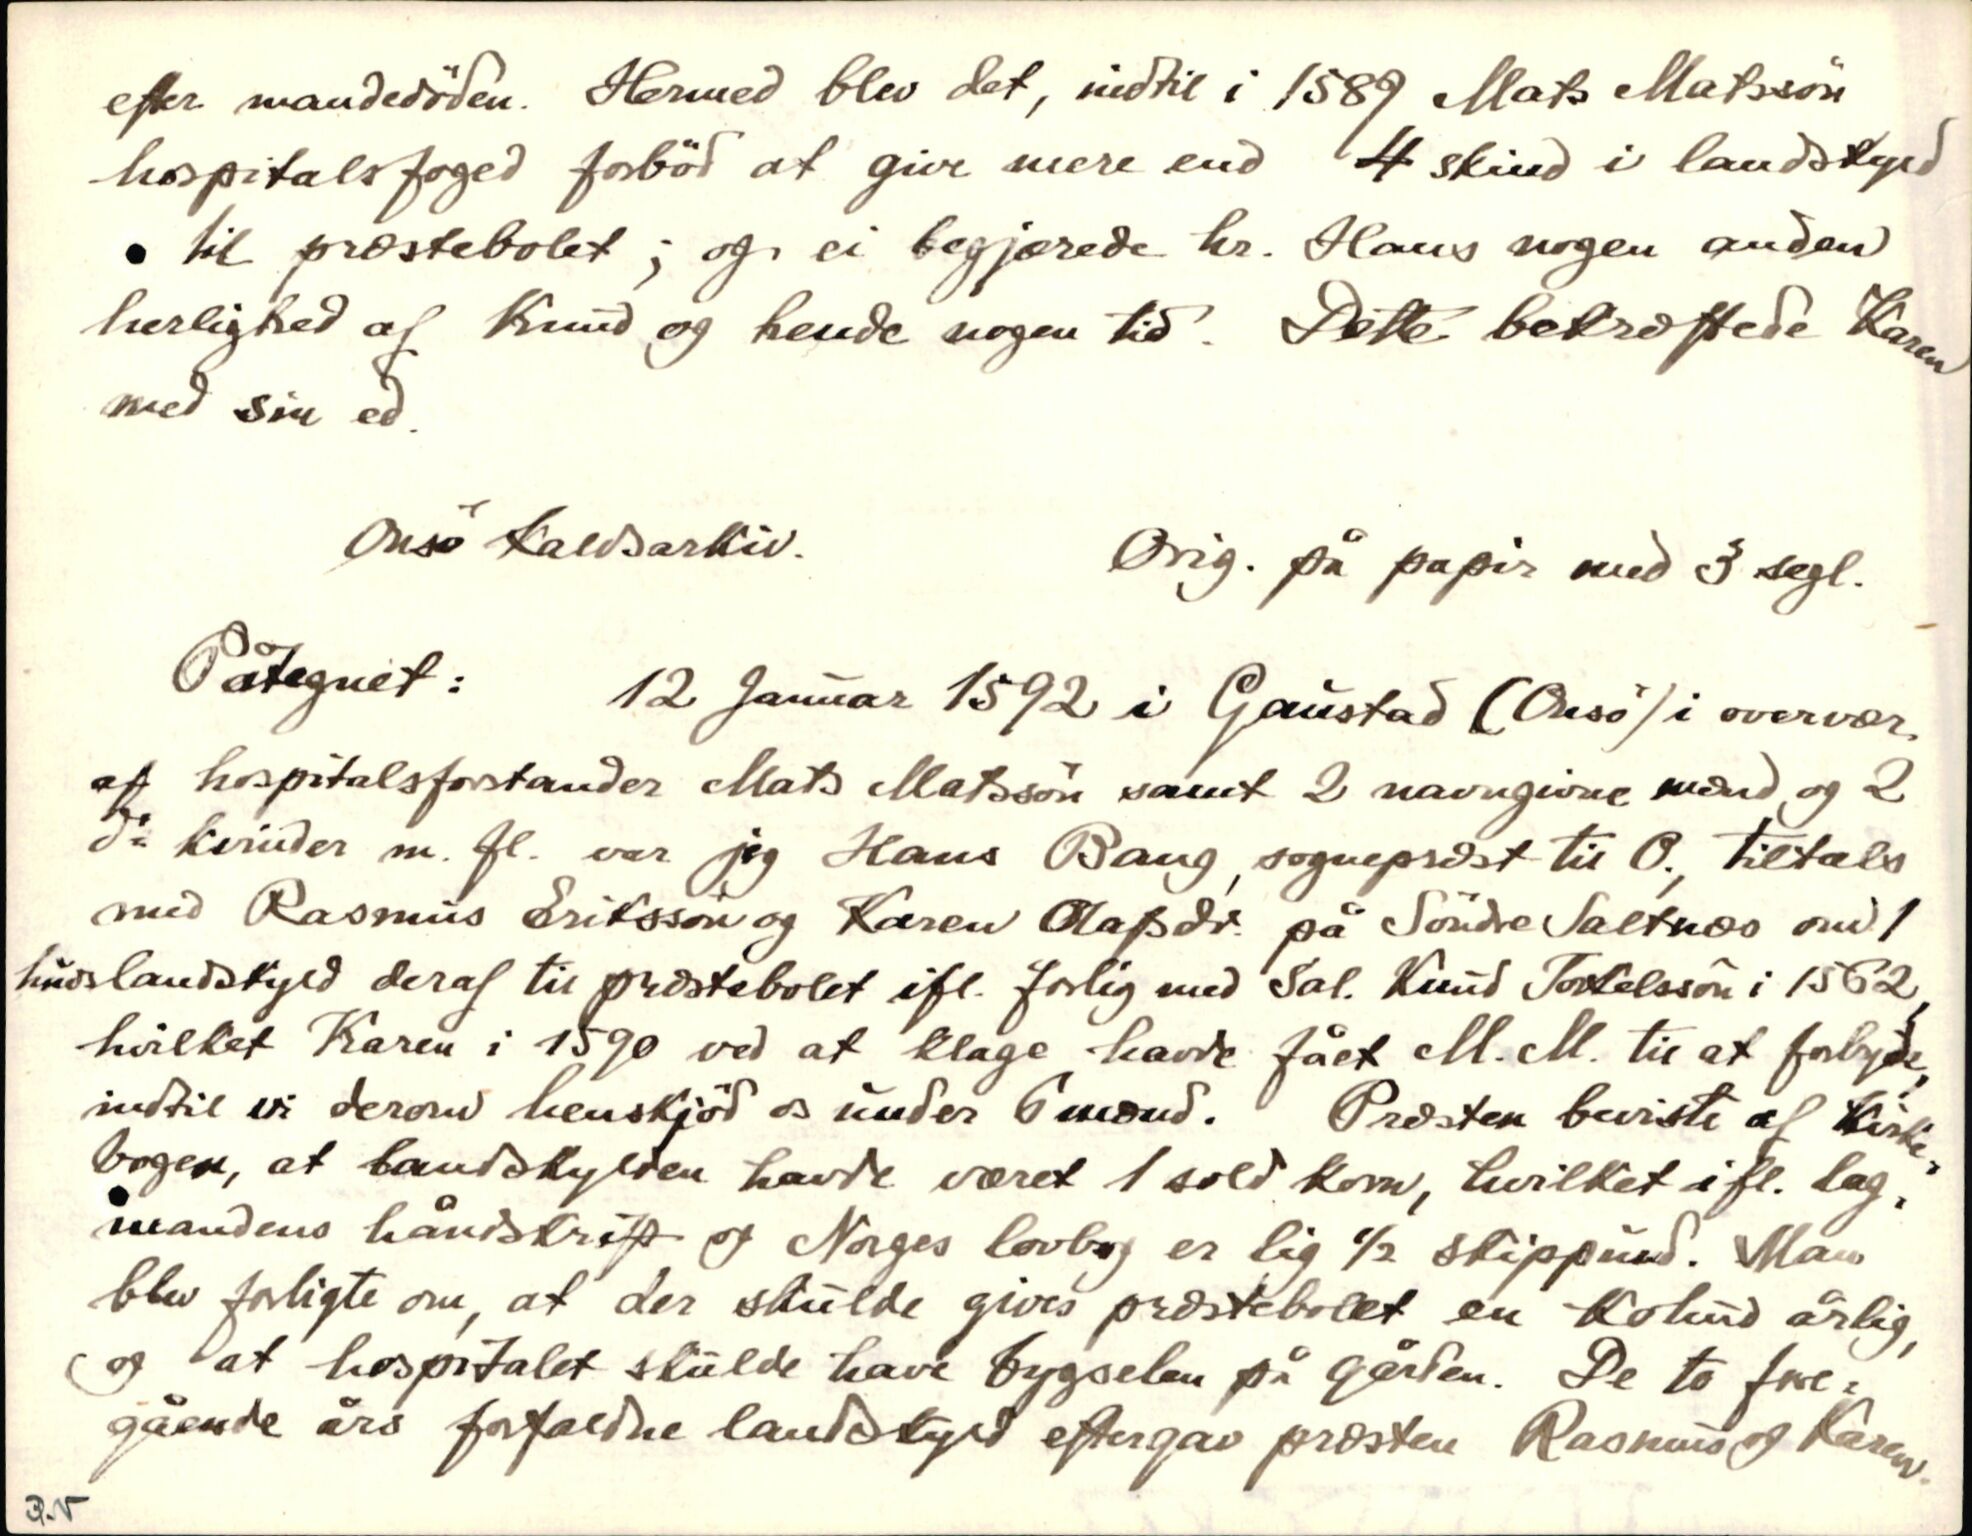 efter mandedöden. Hermed blev det, indtil i 1589 Mats Matssön
hospitalsfoged forböd at give mere end 4 skind i landskyld
til præstebolet; og ei begjærede hr. Hans nogen anden
herlighed af Knud og hende nogen tid. Dette bekræftede Karen
med sin ed.
Onsö Kaldsarkiv.
Orig. på papir med 3 segl.
Påtegnet: 12 Januar 1592 i Gaustad (Onsö) i overvær.
af hospitalsforstander Mats Matssön samt 2 navngivne mænd og 2
do kvinder m. fl. var jeg Hans Bang, sognepræst til O., tiltals
med Rasmus Eriksson og Karen Olafsdr. på Söndre Saltnæs om 1
huds landskyld deraf til præstebolet ifl. forlig med Sal. Knud Torkelssön i 1562,
hvilket Karen i 1590 ved at klage havde fået M. M. til at forbyde,
indtil vi derom henskjöd os under 6 mænd. Præsten beviste af Kirke-
bogen, at landskylden havde været 1 sold korn, hvilket ifl. lag-
mandens håndskrift og Norges lovbog er lig 1/2 skippund. Man
blev forligte om, at der skulde gives præstebolet en Kohud årlig,
og at hospitalet skulde have bygselen på gården. De to fore-
gående års forfaldne landskyld eftergav præsten Rasmus og Karen.